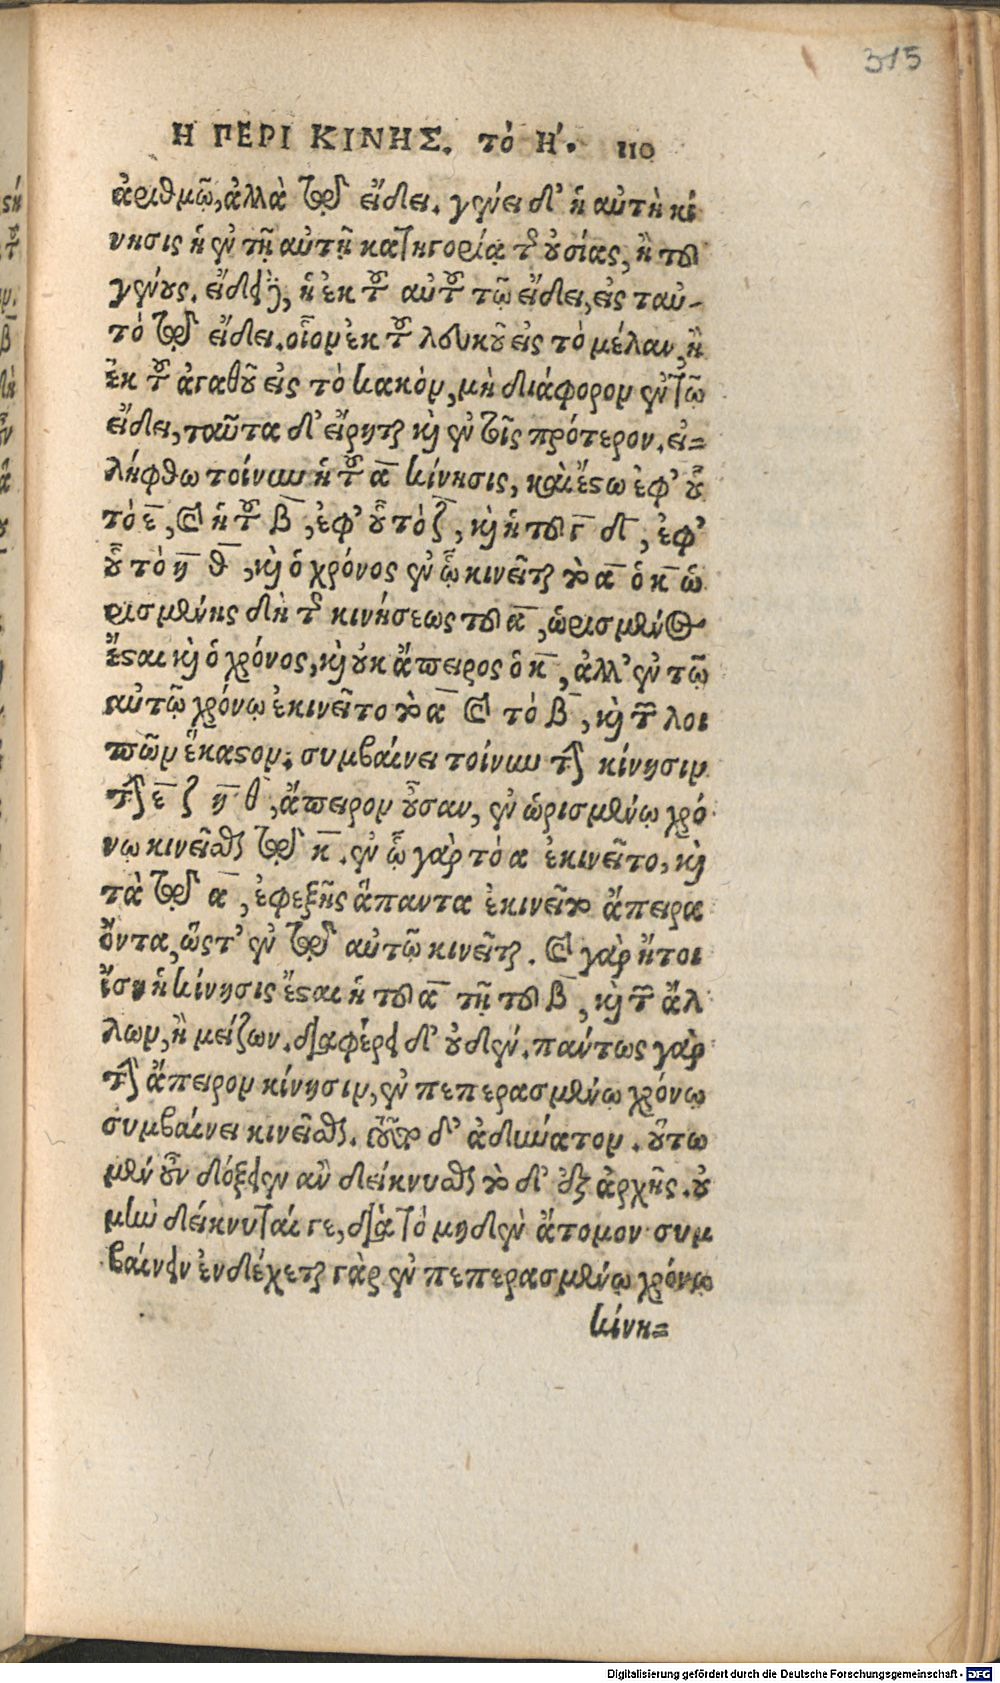 315
Η ΠΕΡΙ ΚΙΝΗΣ. τὸ Η΄. 110
ἀριθμῷ, ἀλλὰ τῷ εἴδει. γένει δ' ἡ αὐτὴ κί
νησις ἡ ἐν τῇ αὐτῇ κατηγορίᾳ τῆς οὐσίας, ἢ τοῦ
γένους. εἴδει δὲ, ἡ ἐκ τοῦ αὐτοῦ τῷ εἴδει, εἰς ταὐ-
τὸ τῷ εἴδει. οἷον ἐκ τοῦ λευκοῦ εἰς τὸ μέλαν, ἢ
ἐκ τοῦ ἀγαθοῦ εἰς τὸ κακὸν, μὴ διάφορον ἐν τῷ
εἴδει, ταῦτα δ' εἴρηται καὶ ἐν τοῖς πρότερον. εἰ=
λήφθω τοίνυν ἡ τοῦ α κίνησις, καὶ ἔστω ἐφ' οὗ
τὸ ε, καὶ ἡ τοῦ β, ἐφ' οὗ τὸ ζ, καὶ ἡ τοῦ γ δ, ἐφ'
οὗ τὸ η θ, καὶ ὁ χρόνος ἐν ᾧ κινεῖται τὸ α ὁ κ ὡ
ρισμένης δὴ τῆς κινήσεως τοῦ α, ὡρισμένος
ἔσται καὶ ὁ χρόνος, καὶ οὐκ ἄπειρος ὁ κ, ἀλλ' ἐν τῷ
αὐτῷ χρόνῳ ἐκινεῖτο τὸ α καὶ τὸ β, καὶ τῶν λοι
πῶν ἕκαστον. συμβαίνει τοίνυν τὴν κίνησιν
τὴν ε ζ η θ, ἄπειρον οὖσαν, ἐν ὡρισμένῳ χρό
νῳ κινεῖσθαι τῷ κ. ἐν ᾧ γὰρ τὸ α ἐκινεῖτο, καὶ
τὰ τῷ α, ἐφεξῆς ἅπαντα ἐκινεῖτο ἄπειρα
ὄντα, ὥστ' ἐν τῷ αὐτῷ κινεῖται. καὶ γὰρ ἤτοι
ἴση ἡ κίνησις ἔσται ἡ τοῦ α τῇ τοῦ β, καὶ τῶν ἄλ
λων, ἢ μείζων. διαφέρει δ' οὐδέν. πάντως γὰρ
τὴν ἄπειρον κίνησιν, ἐν πεπερασμένῳ χρόνῳ
συμβαίνει κινεῖσθαι. τοῦτο δ' ἀδύνατον. οὕτω
μὲν οὖν δόξειεν ἂν δείκνυσθαι τὸ δ' ἐξ ἀρχῆς. οὐ
μὴν δείκνυταί γε, διὰ τὸ μηδὲν ἄτομον συμ
βαίνειν ἐνδέχεται γὰρ ἐν πεπερασμένῳ χρόνῳ
κίνη=
Digitalisierung gefördert durch die Deutsche Forschungsgemeinschaft - DFG